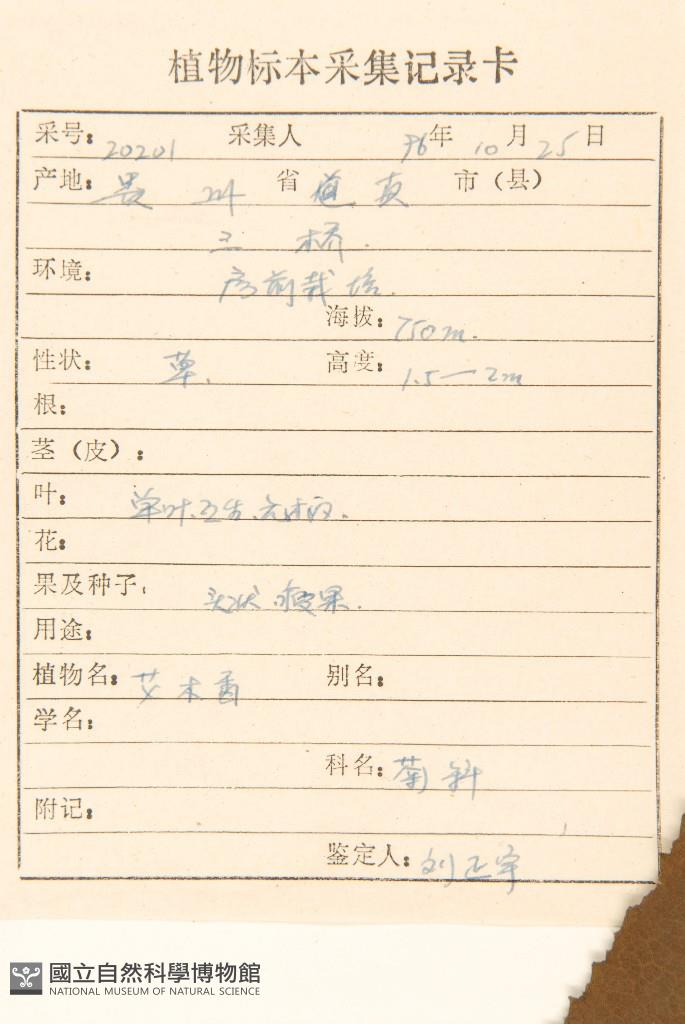 植物标本采集记录卡
采号: 20201 采集人 96年 10月 25日
产地: 贵州 省 道真 市(县)
三桥.
环境: 房前栽培.
海拔: 750m.
性状: 草. 高度: 1.5—2m
根:
茎(皮):
叶: 单叶.互生.
花:
果及种子: 头状.瘦果.
用途:
植物名: 木香 别名:
学名:
科名: 菊科
附记:
鉴定人: 刘正宇
國立自然科學博物館
NATIONAL MUSEUM OF NATURAL SCIENCE